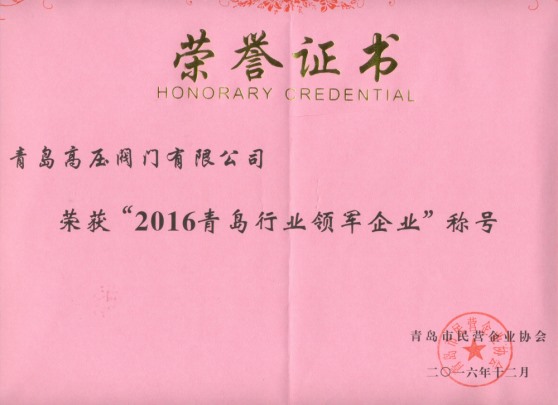 荣誉证书
HONORARY CREDENTIAL
青岛高压阀门有限公司
荣获“2016青岛行业领军企业”称号
青岛市民营企业协会
二〇一六年十二月
青岛市民营企业协会